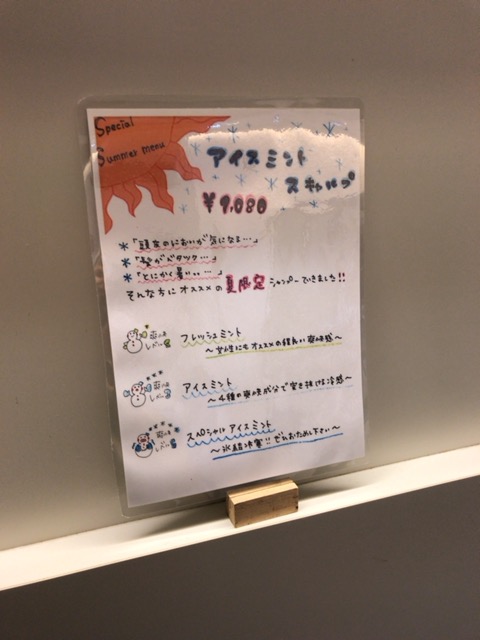 Special
Summer menu
アイスミント
スキャルプ
¥9,080
*「頭皮のにおいが気になる…」
*「髪がベタつく…」
*「とにかく暑い…」
そんな方にオススメの夏限定シャンプーできました!!
爽快レベル
フレッシュミント
〜女性にもオススメの程よい爽快感〜
爽快レベル
アイスミント
〜4種の爽快成分で突き抜ける冷感〜
爽快レベル
スペシャルアイスミント
〜氷結決寒!!ぜひおためし下さい〜